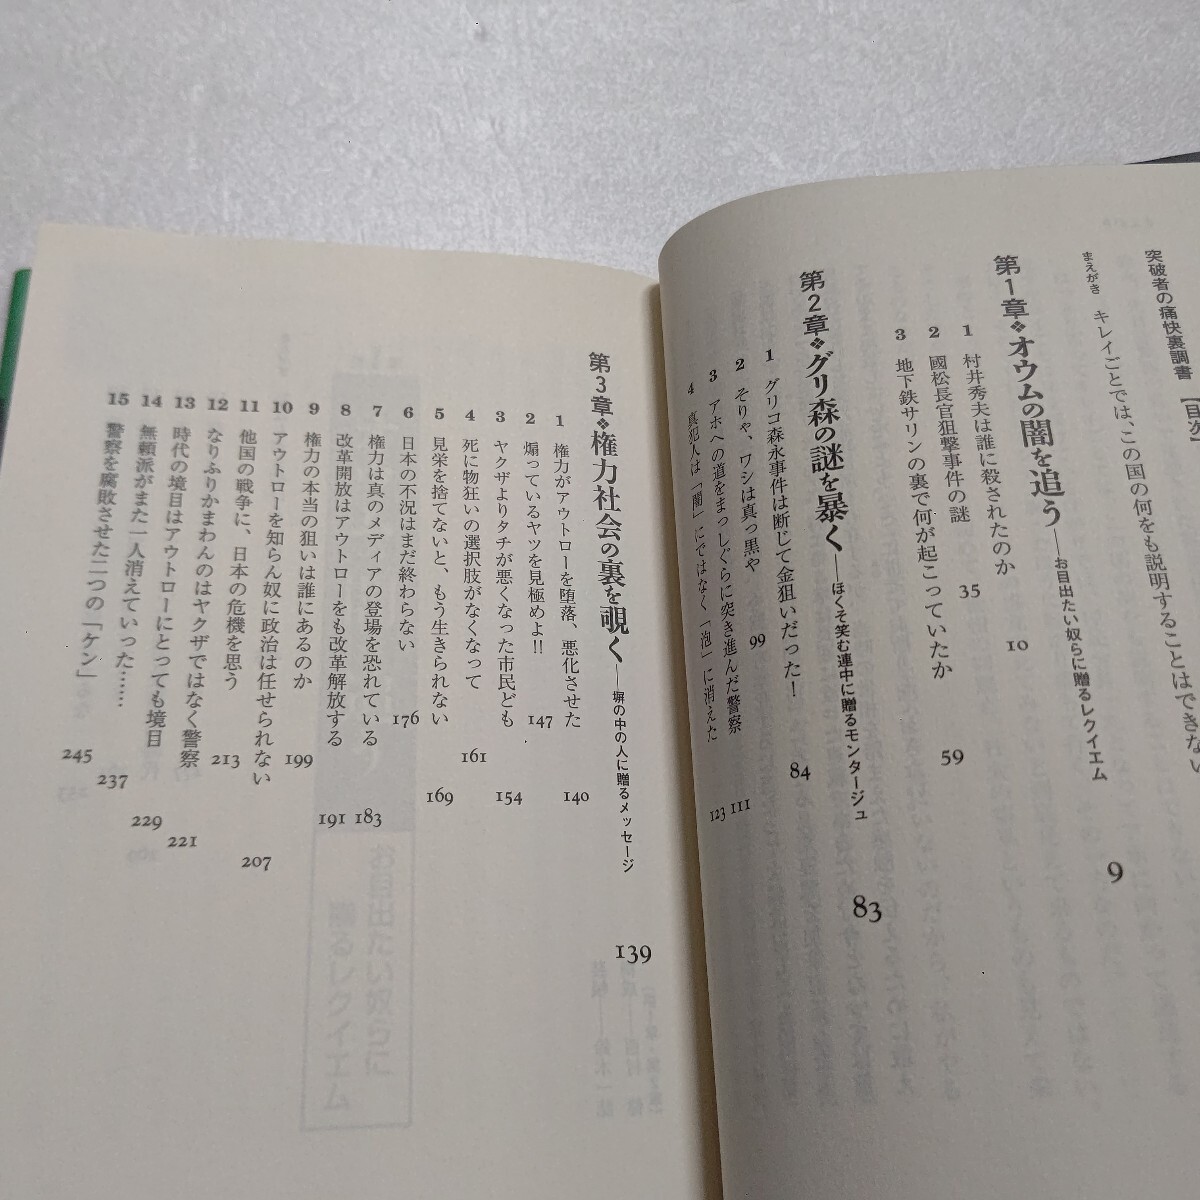 突破者の痛快裏調書【目次】
まえがき キレイごとでは、この国の何をも説明することはできない
第1章❖オウムの闇を追う——お目出たい奴らに贈るレクイエム 9
1 村井秀夫は誰に殺されたのか 10
2 國松長官狙撃事件の謎 35
3 地下鉄サリンの裏で何が起こっていたか 59
第2章❖グリ森の謎を暴く——ほくそ笑む連中に贈るモンタージュ 83
1 グリコ森永事件は断じて金狙いだった！ 84
2 そりゃ、ワシは真っ黒や 99
3 アホへの道をまっしぐらに突き進んだ警察 111
4 真犯人は「闇」にではなく「泡」に消えた 123
第3章❖権力社会の裏を覗く——塀の中の人に贈るメッセージ 139
1 権力がアウトローを堕落、悪化させた 140
2 煽っているヤツを見極めよ!! 147
3 ヤクザよりタチが悪くなった市民ども 154
4 死に物狂いの選択肢がなくなって 161
5 見栄を捨てないと、もう生きられない 169
6 日本の不況はまだ終わらない 176
7 権力は真のメディアの登場を恐れている 183
8 改革開放はアウトローをも改革解放する 191
9 権力の本当の狙いは誰にあるのか 199
10 アウトローを知らん奴に政治は任せられない 207
11 他国の戦争に、日本の危機を思う 213
12 なりふりかまわんのはヤクザではなく警察 221
13 時代の境目はアウトローにとっても境目 229
14 無頼派がまた一人消えていった…… 237
15 警察を腐敗させた二つの「ケン」 245